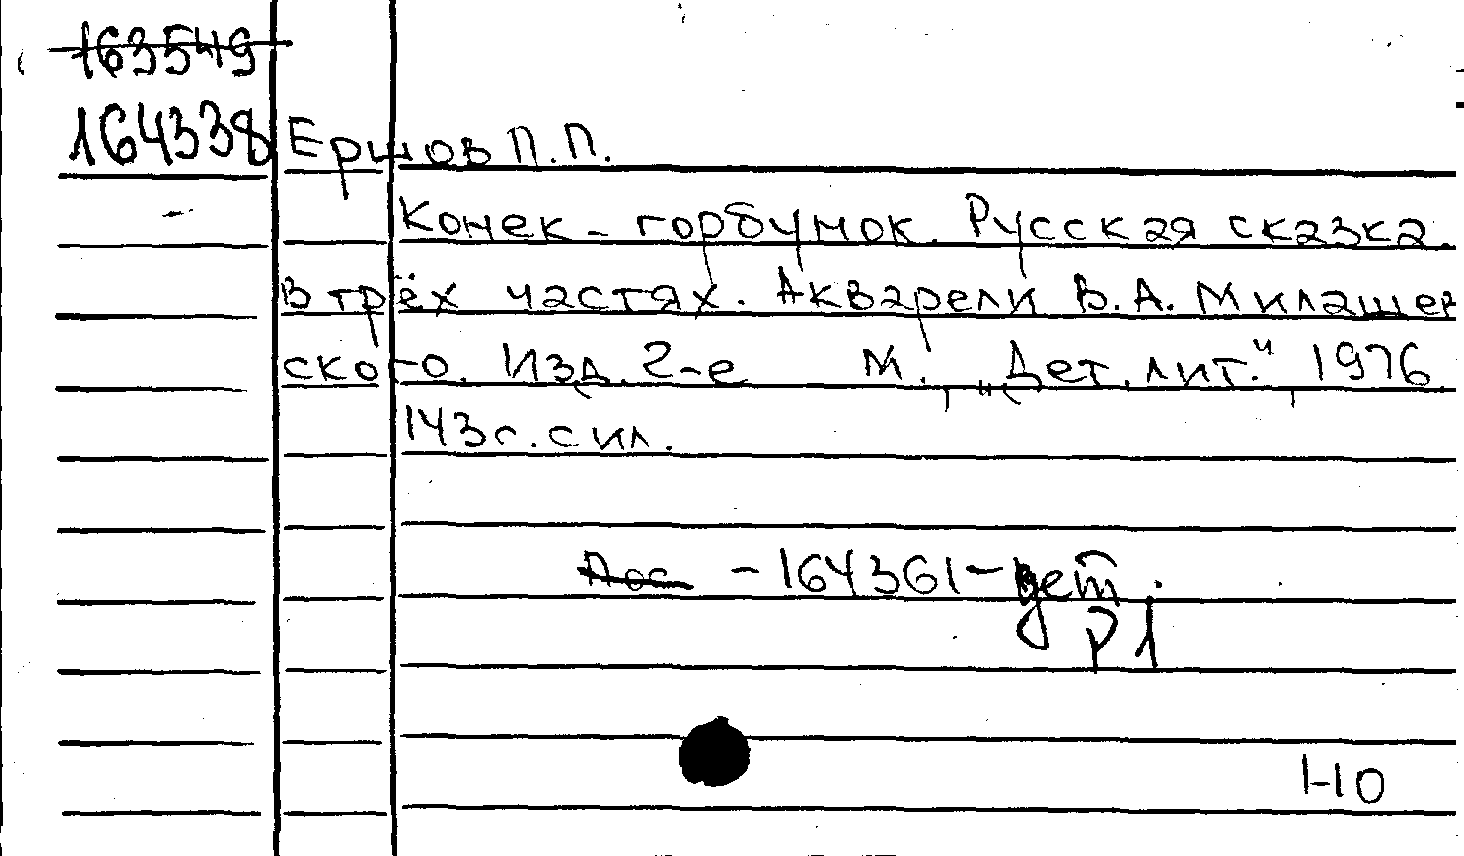 163549
164338 Ершов П.П.
Конек-горбунок. Русская сказка
в трёх частях. Акварели В.А. Милашев
ского. Изд. 2-е М., "Дет. лит.", 1976.
143с. с ил.
Лос - 164361 - дет.
р1
1-10